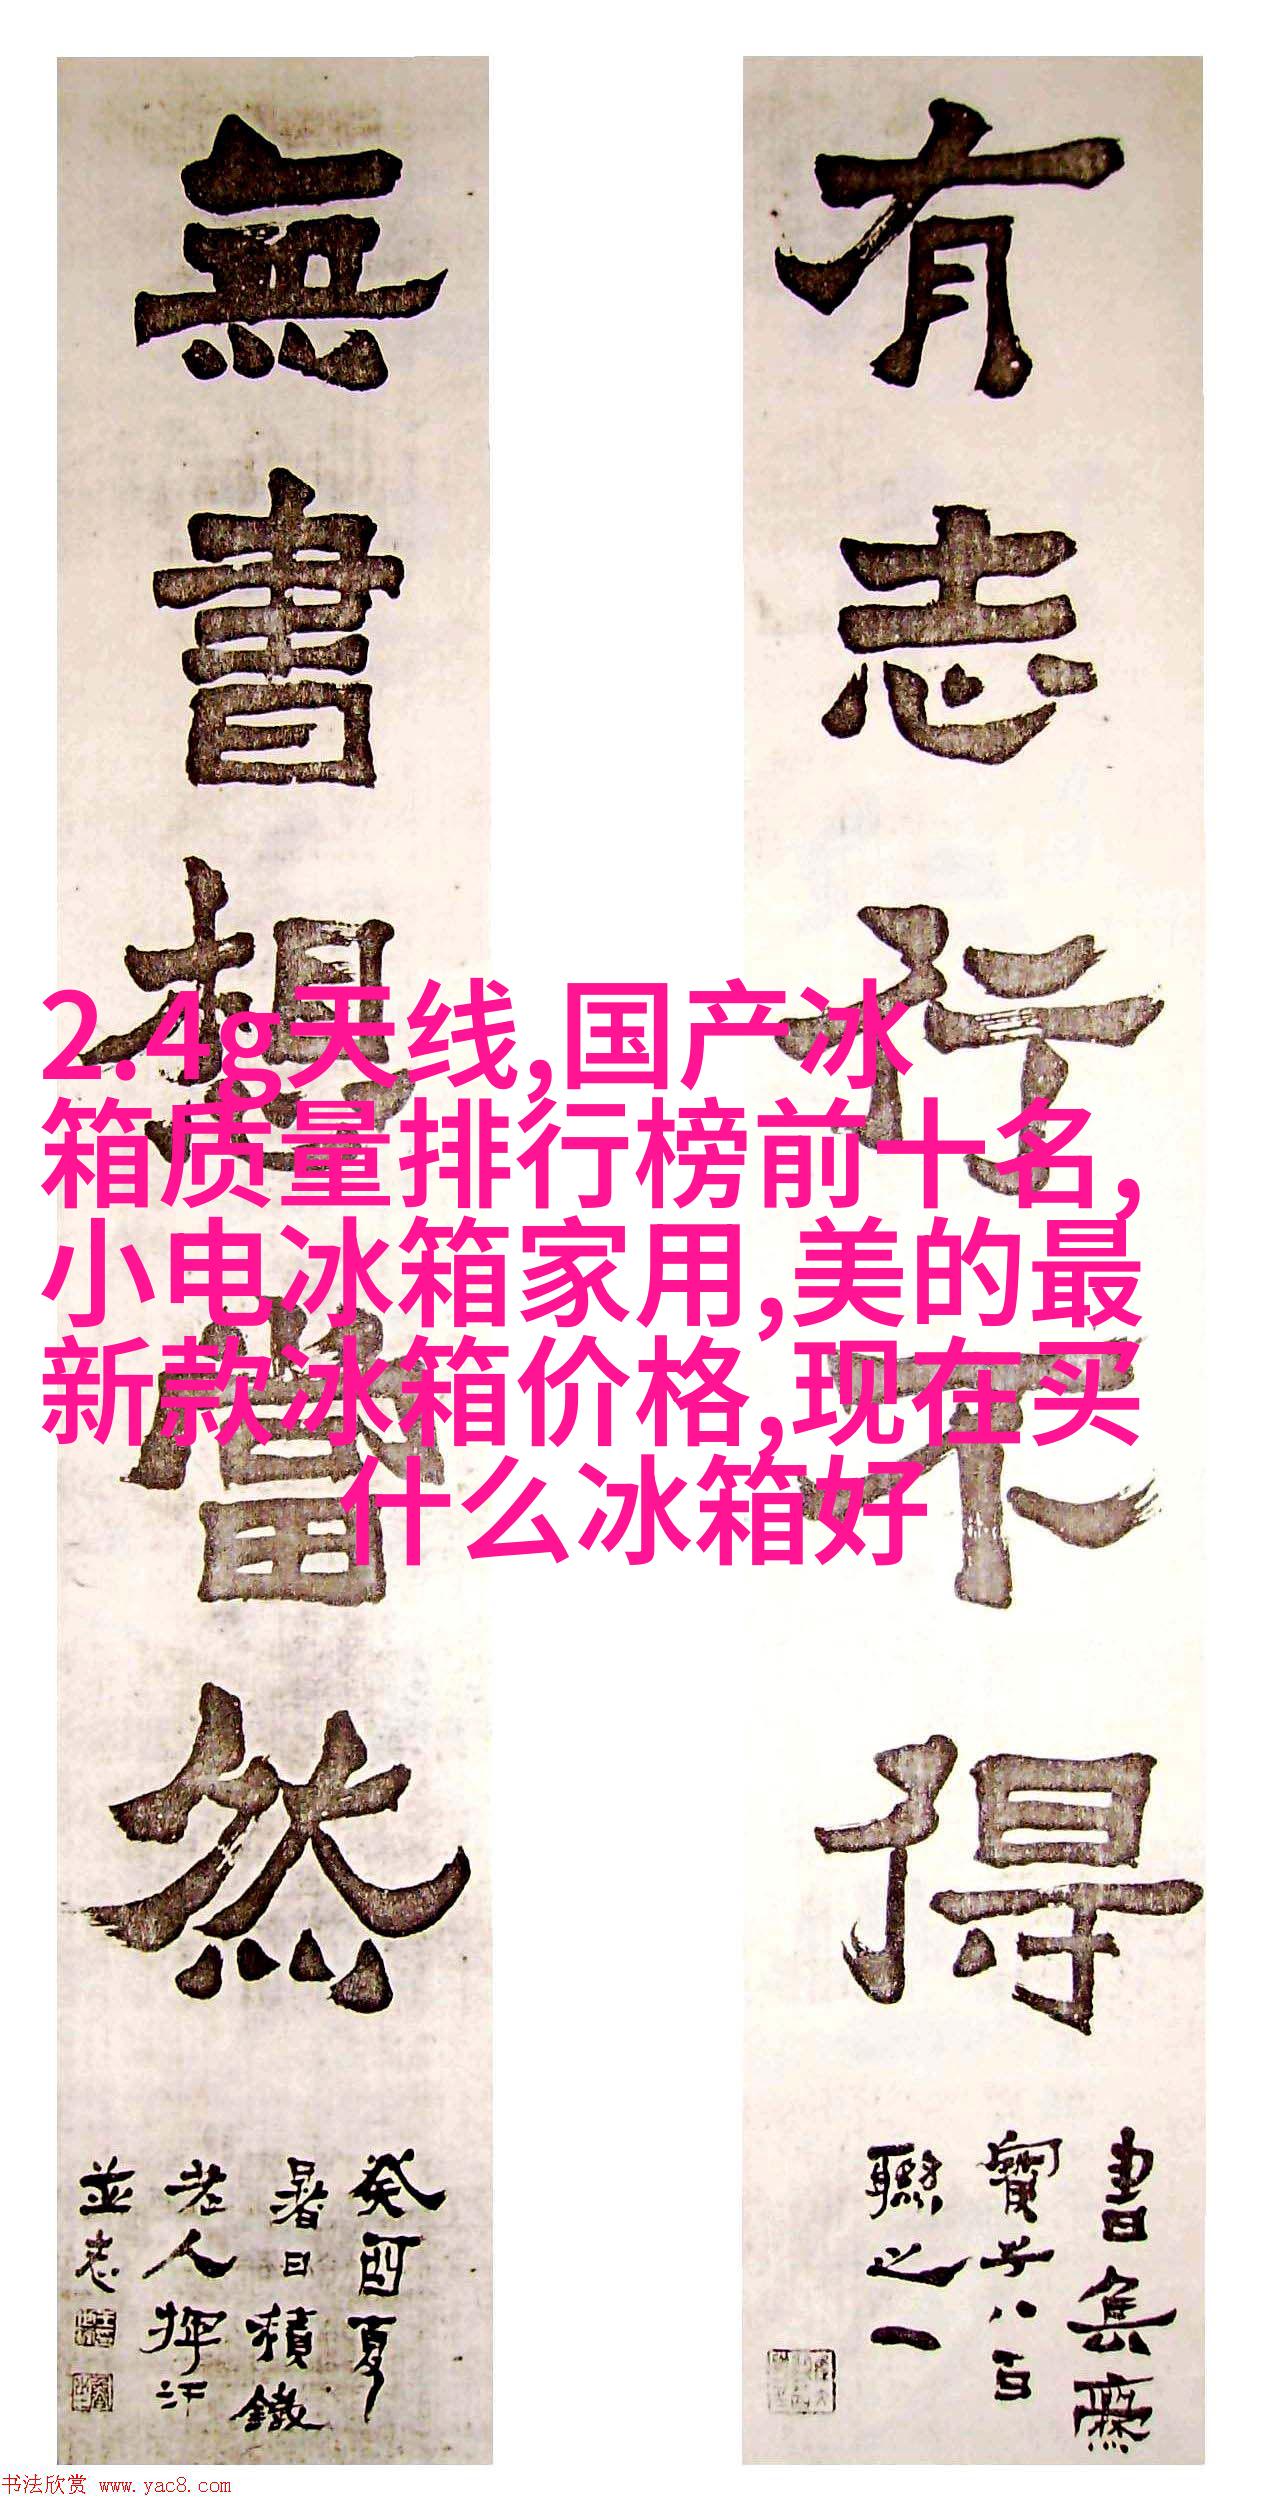 有志行不得
書集爨
寶子八百
聯之一
無書想當然
癸酉夏
暑日積鐵
老人揮汗
並志
2.4g天线,国产冰
箱质量排行榜前十名,
小电冰箱家用,美的最
新款冰箱价格,现在买
什么冰箱好
书法欣赏 www.yac8.com